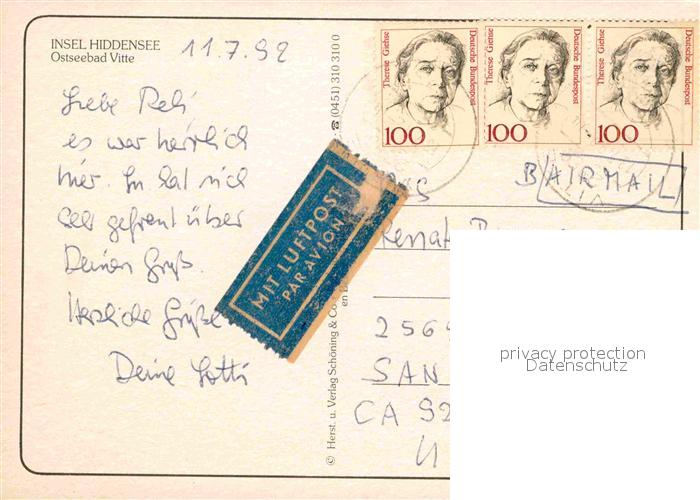 INSEL HIDDENSEE
Ostseebad Vitte
11.7.92
Liebe
es war herrlich
hier. hat sich
sehr gefreut über
Deinen Gruß.
Herzliche Grüße
Deine Lotti
☎ (0451) 310 310 0
© Herst. u. Verlag Schöning & Co
MIT LUFTPOST
PAR AVION
Therese Giehse
Deutsche Bundespost
100
Therese Giehse
Deutsche Bundespost
100
Therese Giehse
Deutsche Bundespost
100
AIRMAIL
Renat
256
SAN
CA 92
U
privacy protection
Datenschutz